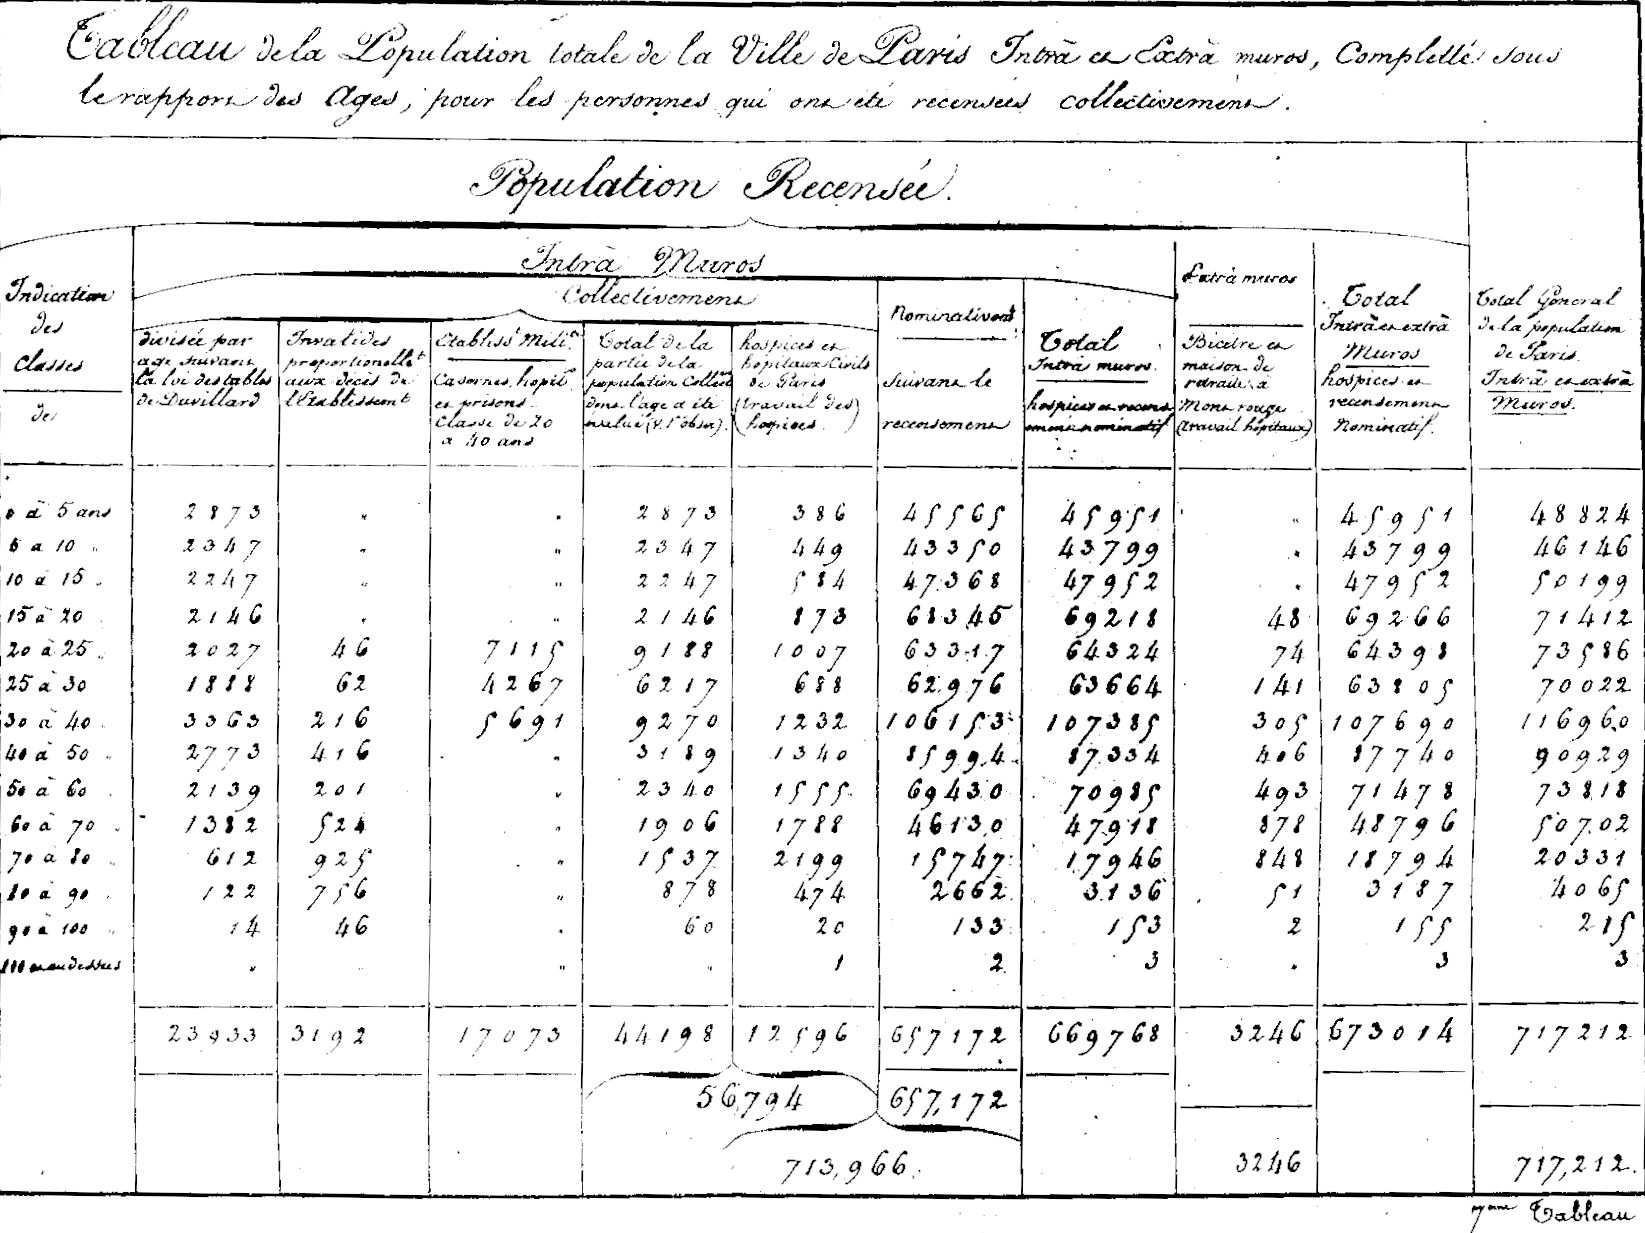 Tableau de la Population totale de la Ville de Paris Intrà et Extrà muros, Complettée sous
le rapport des Ages, pour les personnes qui ont été recensées collectivement.
Population Recensée.
Intrà Muros
Collectivement
Indication
des
Classes
de
divisée par
age suivant
la loi des tables
de Duvillard
Invalides
proportionellet
aux décès de
l'établissemt
Etablisst Milit.
Casernes, hopit.
et prisons.
Classe de 20
a 40 ans
Total de la
partie de la
population Collect.
dont l'age a été
évalué (v. 1e obson).
hospices et
hôpitaux Civils
de Paris
(travail des
hospices.)
Nominativemt
Suivant le
recensement
Total
Intrà muros.
hospices et recens
ement nominatif
Extrà muros
Bicetre et
maison de
retraite à
Mont rouge
(travail hôpitaux)
Total
Intrà et extrà
Muros
hospices et
recensement
Nominatif.
Total Géneral
de la population
de Paris.
Intrà et extrà
Muros.
0 à 5 ans 2873 " " 2873 386 45565 45951 " 45951 48824
5 a 10 " 2347 " " 2347 449 43350 43799 " 43799 46146
10 à 15 " 2247 " " 2247 584 47368 47952 " 47952 50199
15 à 20 2146 " " 2146 873 68345 69218 48 69266 71412
20 à 25 " 2027 46 7115 9188 1007 63317 64324 74 64398 73586
25 à 30 1888 62 4267 6217 688 62976 63664 141 63805 70022
30 à 40 3363 216 5691 9270 1232 106153 107385 305 107690 116960
40 à 50 " 2773 416 " 3189 1340 85994 87334 406 87740 90929
50 à 60 2139 201 " 2340 1555 69430 70985 493 71478 73818
60 à 70 " 1382 524 " 1906 1788 46130 47918 878 48796 50702
70 à 80 " 612 925 " 1537 2199 15747 17946 848 18794 20331
80 à 90 122 756 " 878 474 2662 3136 51 3187 4065
90 à 100 " 14 46 " 60 20 133 153 2 155 215
100 et au dessus " " " " 1 2 3 " 3 3
23933 3192 17073 44198 12596 657172 669768 3246 673014 717212
56,794 657,172
713,966. 3246 717,212.
7eme Tableau